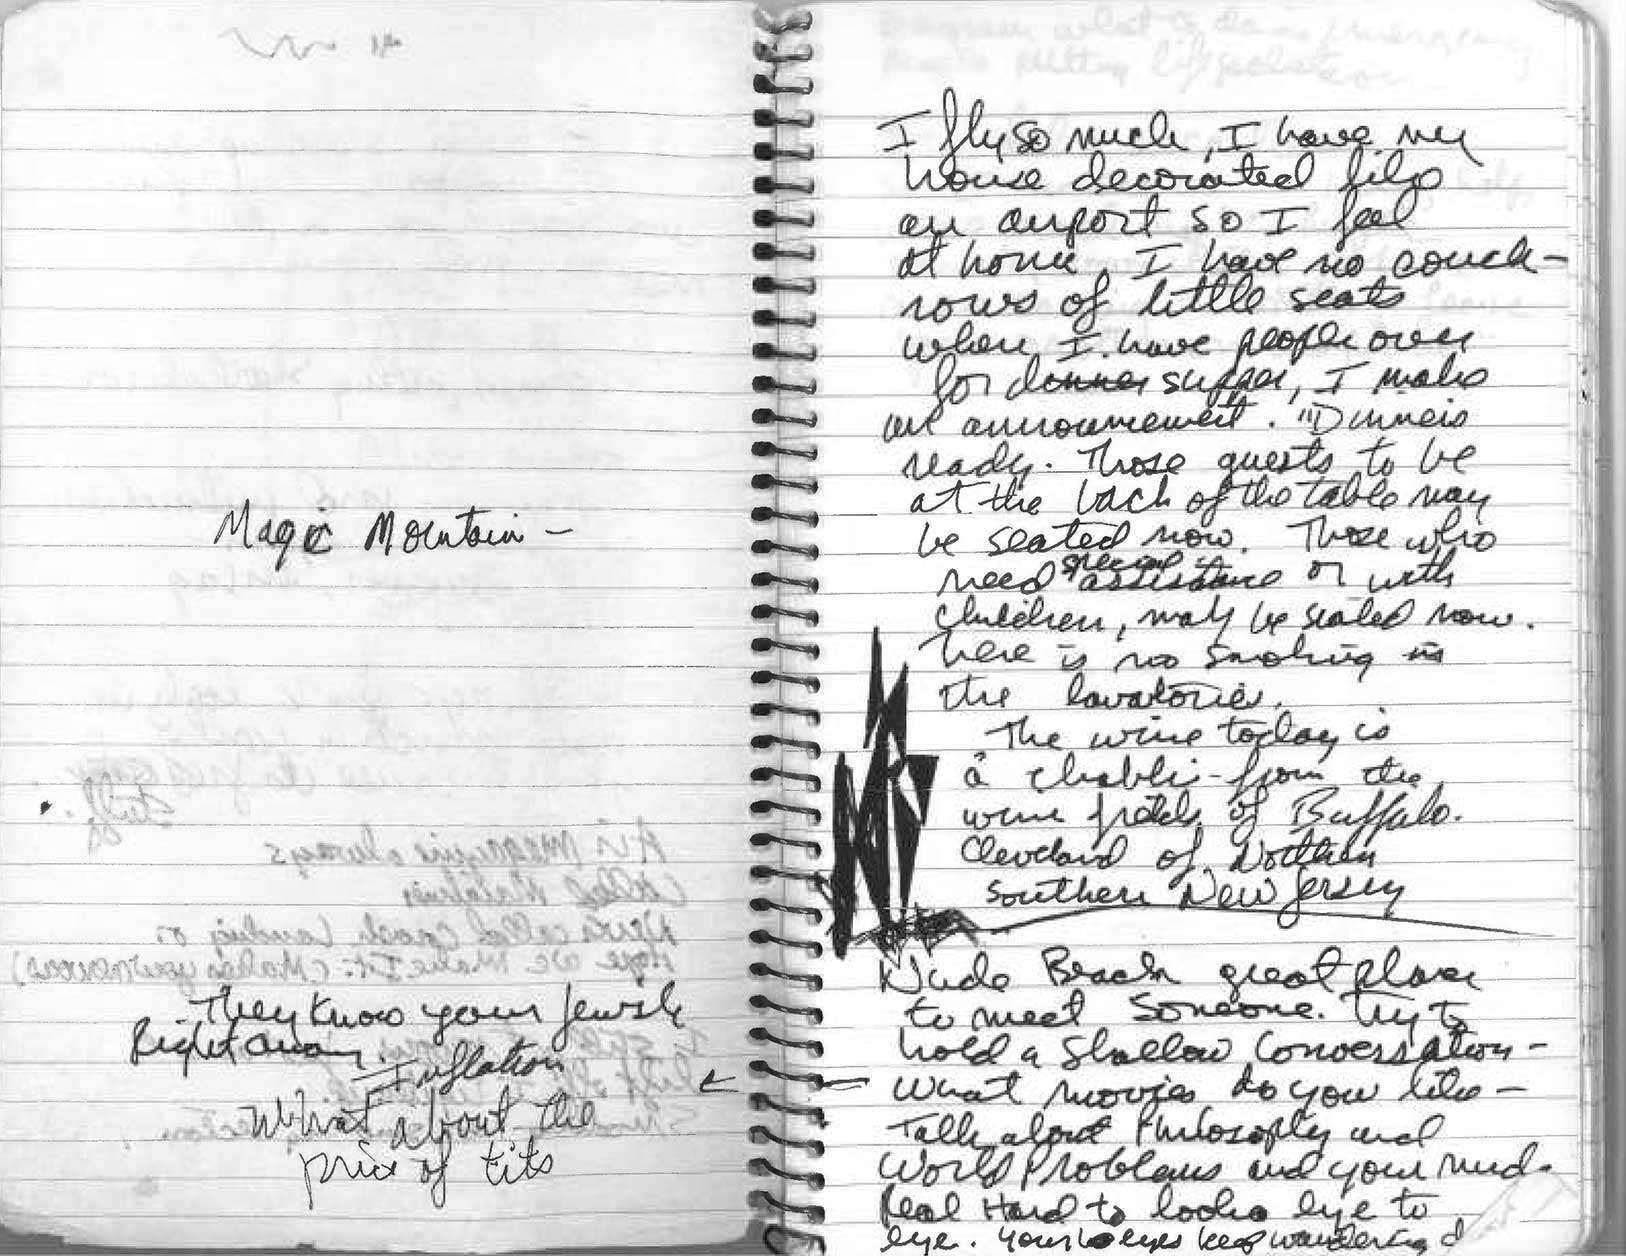 Magic Mountain -
They know your Jewish
Right away.
Inflation
What about the
price of tits
I fly so much, I have my
house decorated like
an airport so I feel
at home, I have no couch -
rows of little seats
when I have people over
for dinner supper, I make
an announcement. "Dinneris
ready. Those guests to be
at the back of the table may
be seated now. Those who
need special assistance or with
children, may be seated now.
There is no smoking in
the lavatories.
The wine today is
a chablis - from the
wine fields of Buffalo.
Cleveland of Northern
Southern New Jersey
Nude Beach great place
to meet someone. Try to
hold a Shallow Conversation -
What movies do you like -
Talk about Philosophy and
World Problems and your nude.
Real Hard to look eye to
eye. Your eyes keep wandering